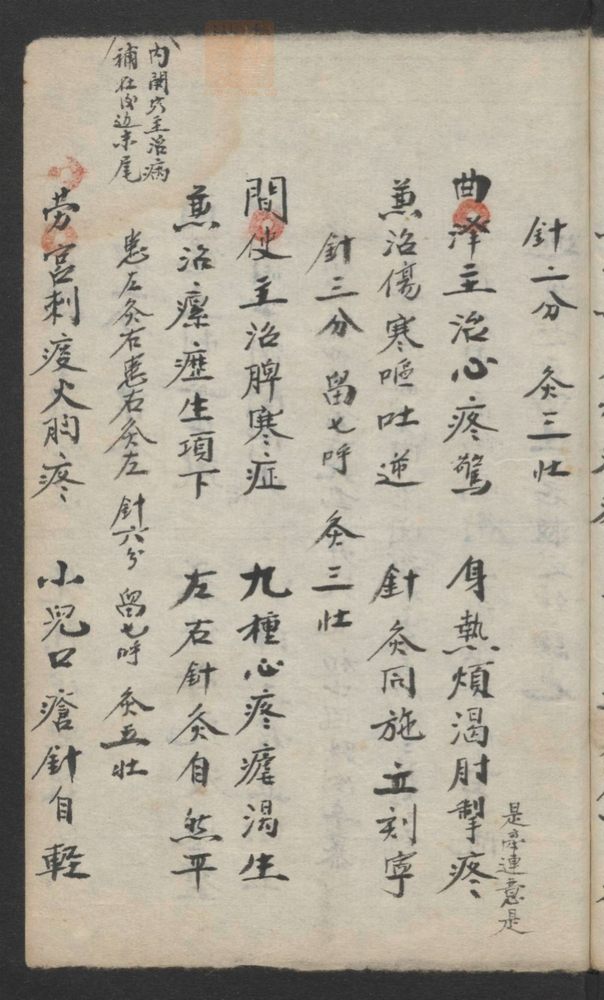 針二分　灸三壯
曲澤主治心疼驚　身熱煩渴肘掣疼
是牽連意是
兼治傷寒嘔吐逆　針灸同施立刻寧
針三分　畱七呼　灸三壯
間使主治脾寒症　九種心疼瘧渴生
兼治瘰癧生項下　左右針灸自然平
患左灸右患右灸左　針六分　畱七呼　灸五壯
內関穴主治病
補在後边末尾
劳宮刺痰火胸疼　小兒口瘡針自輕